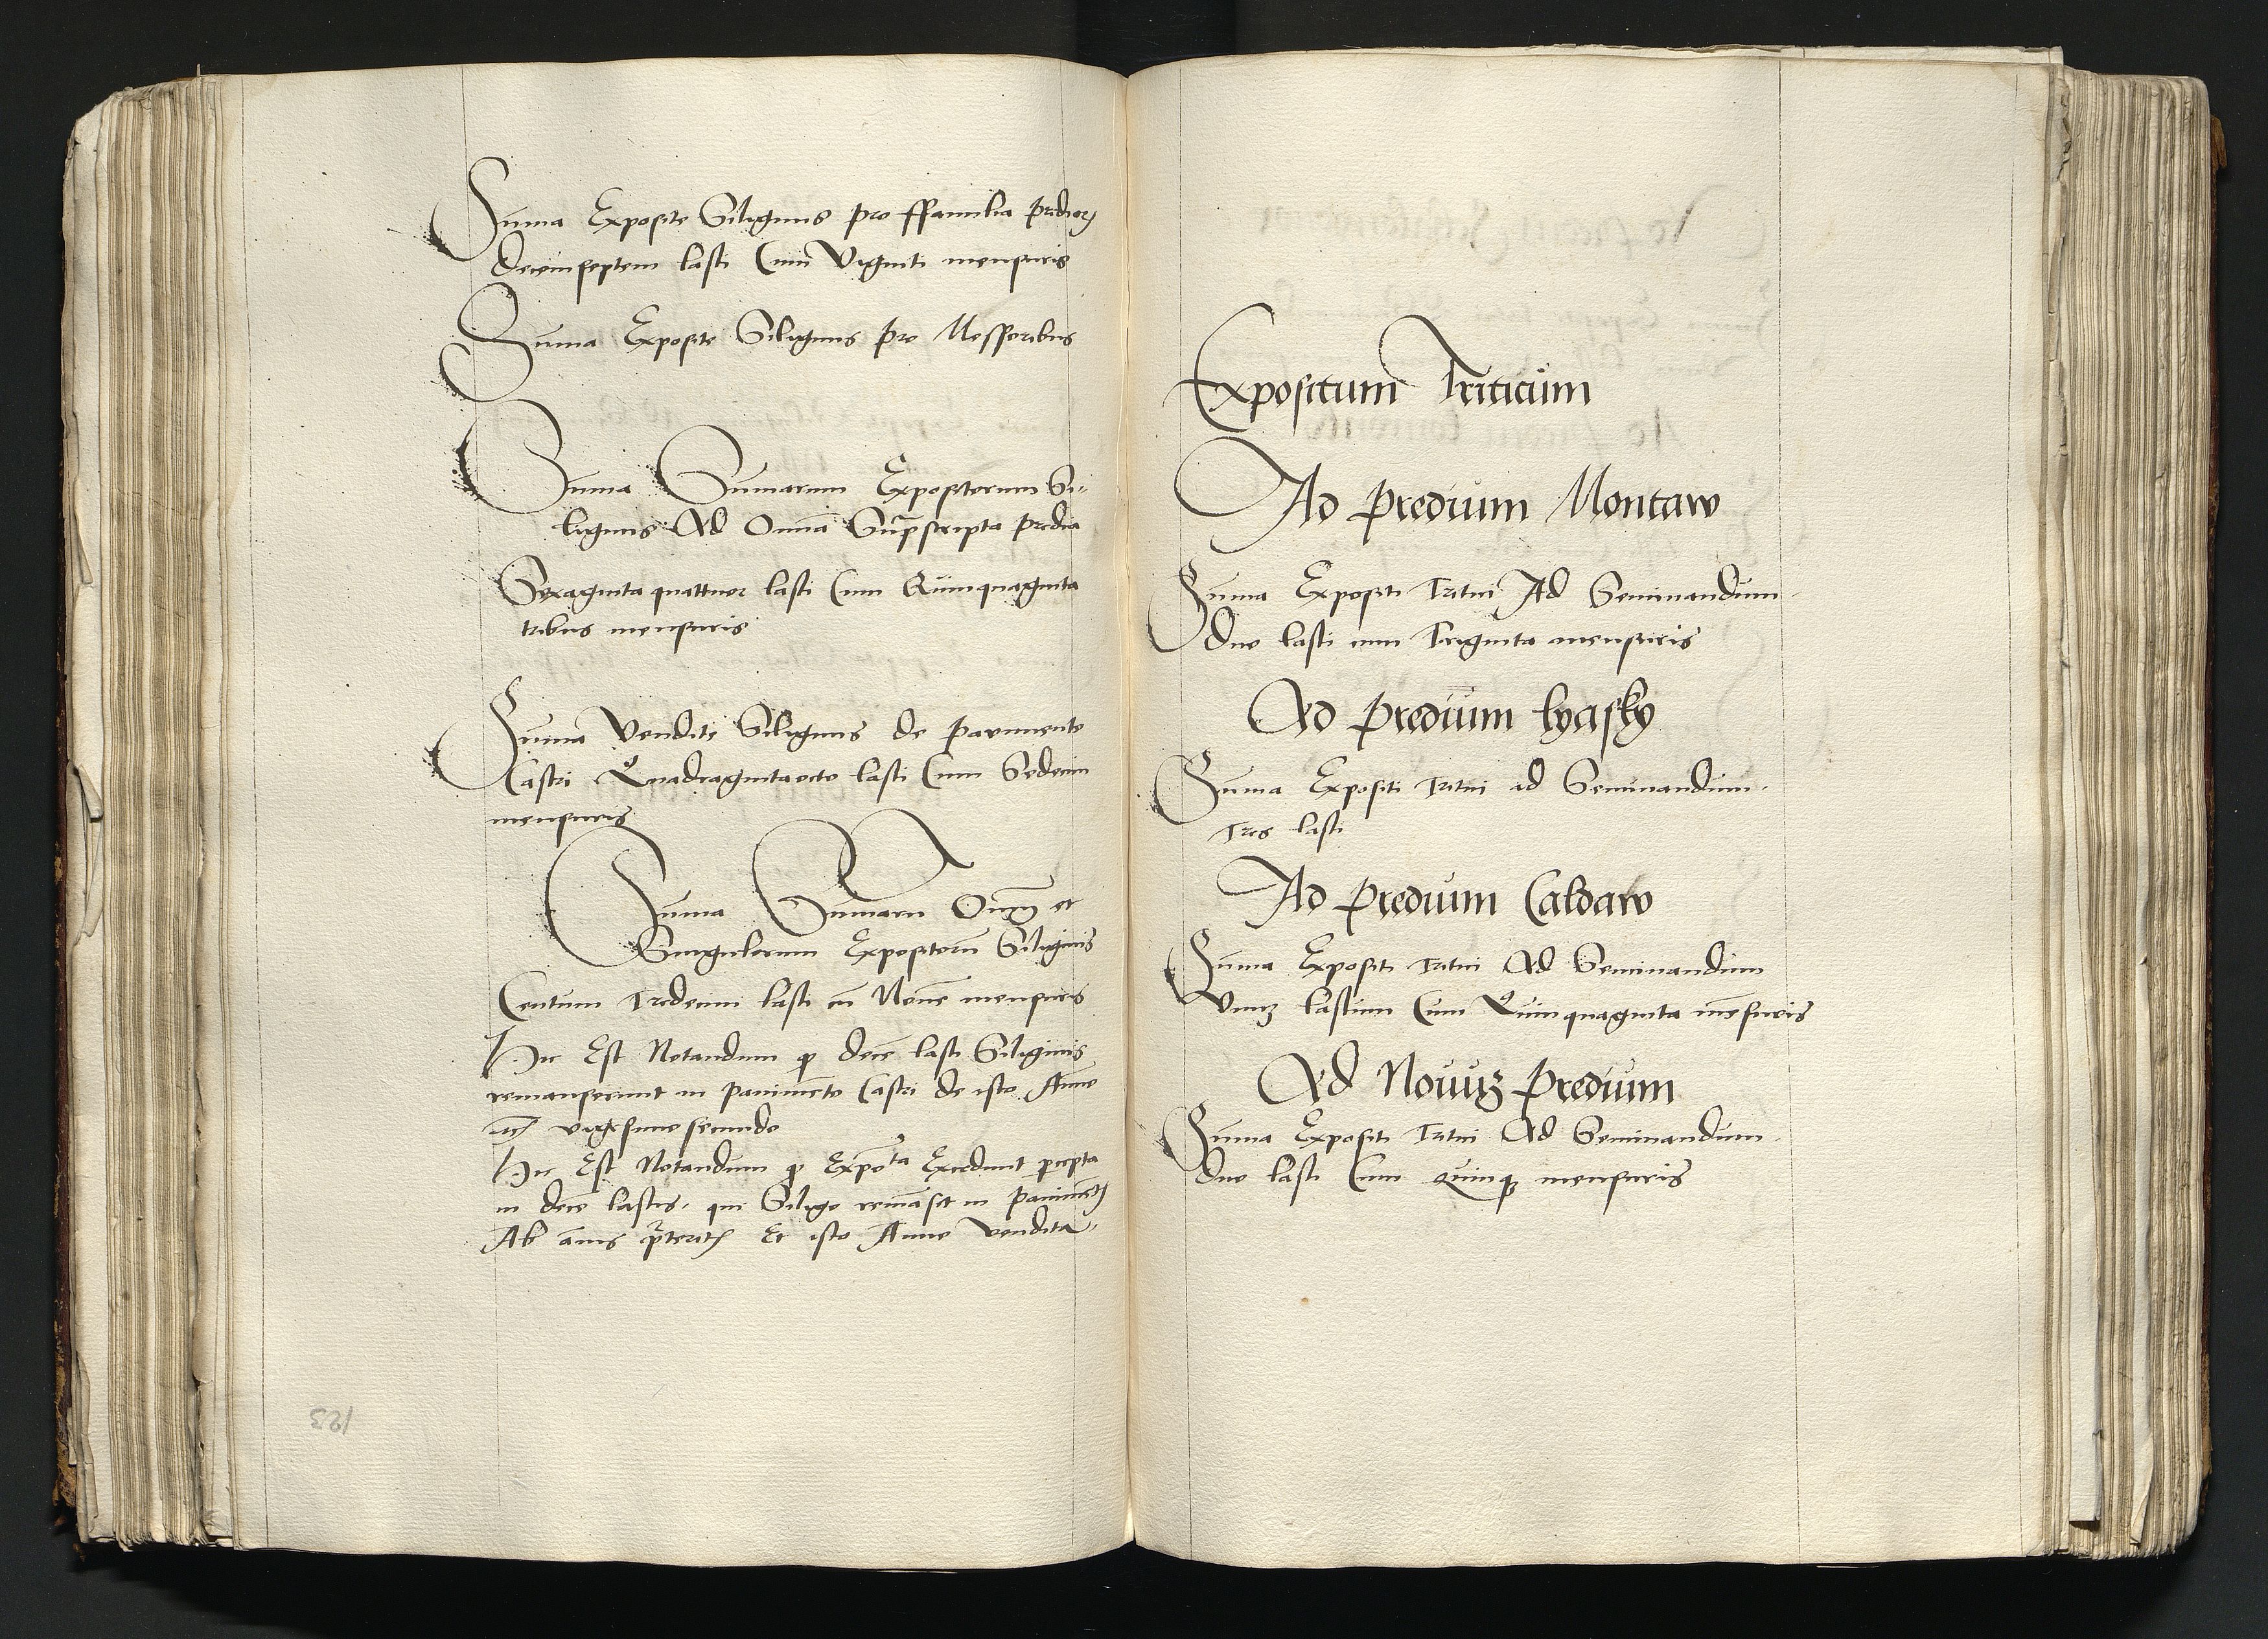 Suma Exposite Siliginis pro ffamilia prediorum
Decemseptem lasti Cum Viginti mensuris
Suma Exposite Siliginis pro Messoribus
Suma Sumarum Expositorum Si-
liginis Ad Omnia Supscripta predia
Sexaginta quattuor lasti Cum Quinquaginta
tribus mensuris
Suma Vendite Siliginis de pavimento
Castri Quadragintaocto lasti Cum Sedecim
mensuris
Suma Sumarum Omnium et
Singulorum Expositorum Siliginis
Centum Tredecim lasti cum Novem mensuris
Hic Est Notandum quod decem lasti Siliginis
remanserunt in pavimento Castri de isto Anno
etc vigesimo secundo
Hic Est Notandum quod Exposita Excedunt percepta
in decem lastis. qui Siligo remansit in pavimento
Ab annis preteritis Et isto Anno vendita.
123
Expositum Triticum
Ad predium Montaw
Suma Expositi Tritici Ad Seminandum
duo lasti cum Triginta mensuris
Ad predium lyasky
Suma Expositi Tritici ad Seminandum.
Tres lasti
Ad predium Caldaw
Suma Expositi Tritici Ad Seminandum
Vnus lastium Cum Quinquaginta mensuris
Ad Nouuz predium
Suma Expositi Tritici Ad Seminandum.
duo lasti Cum quinque mensuris